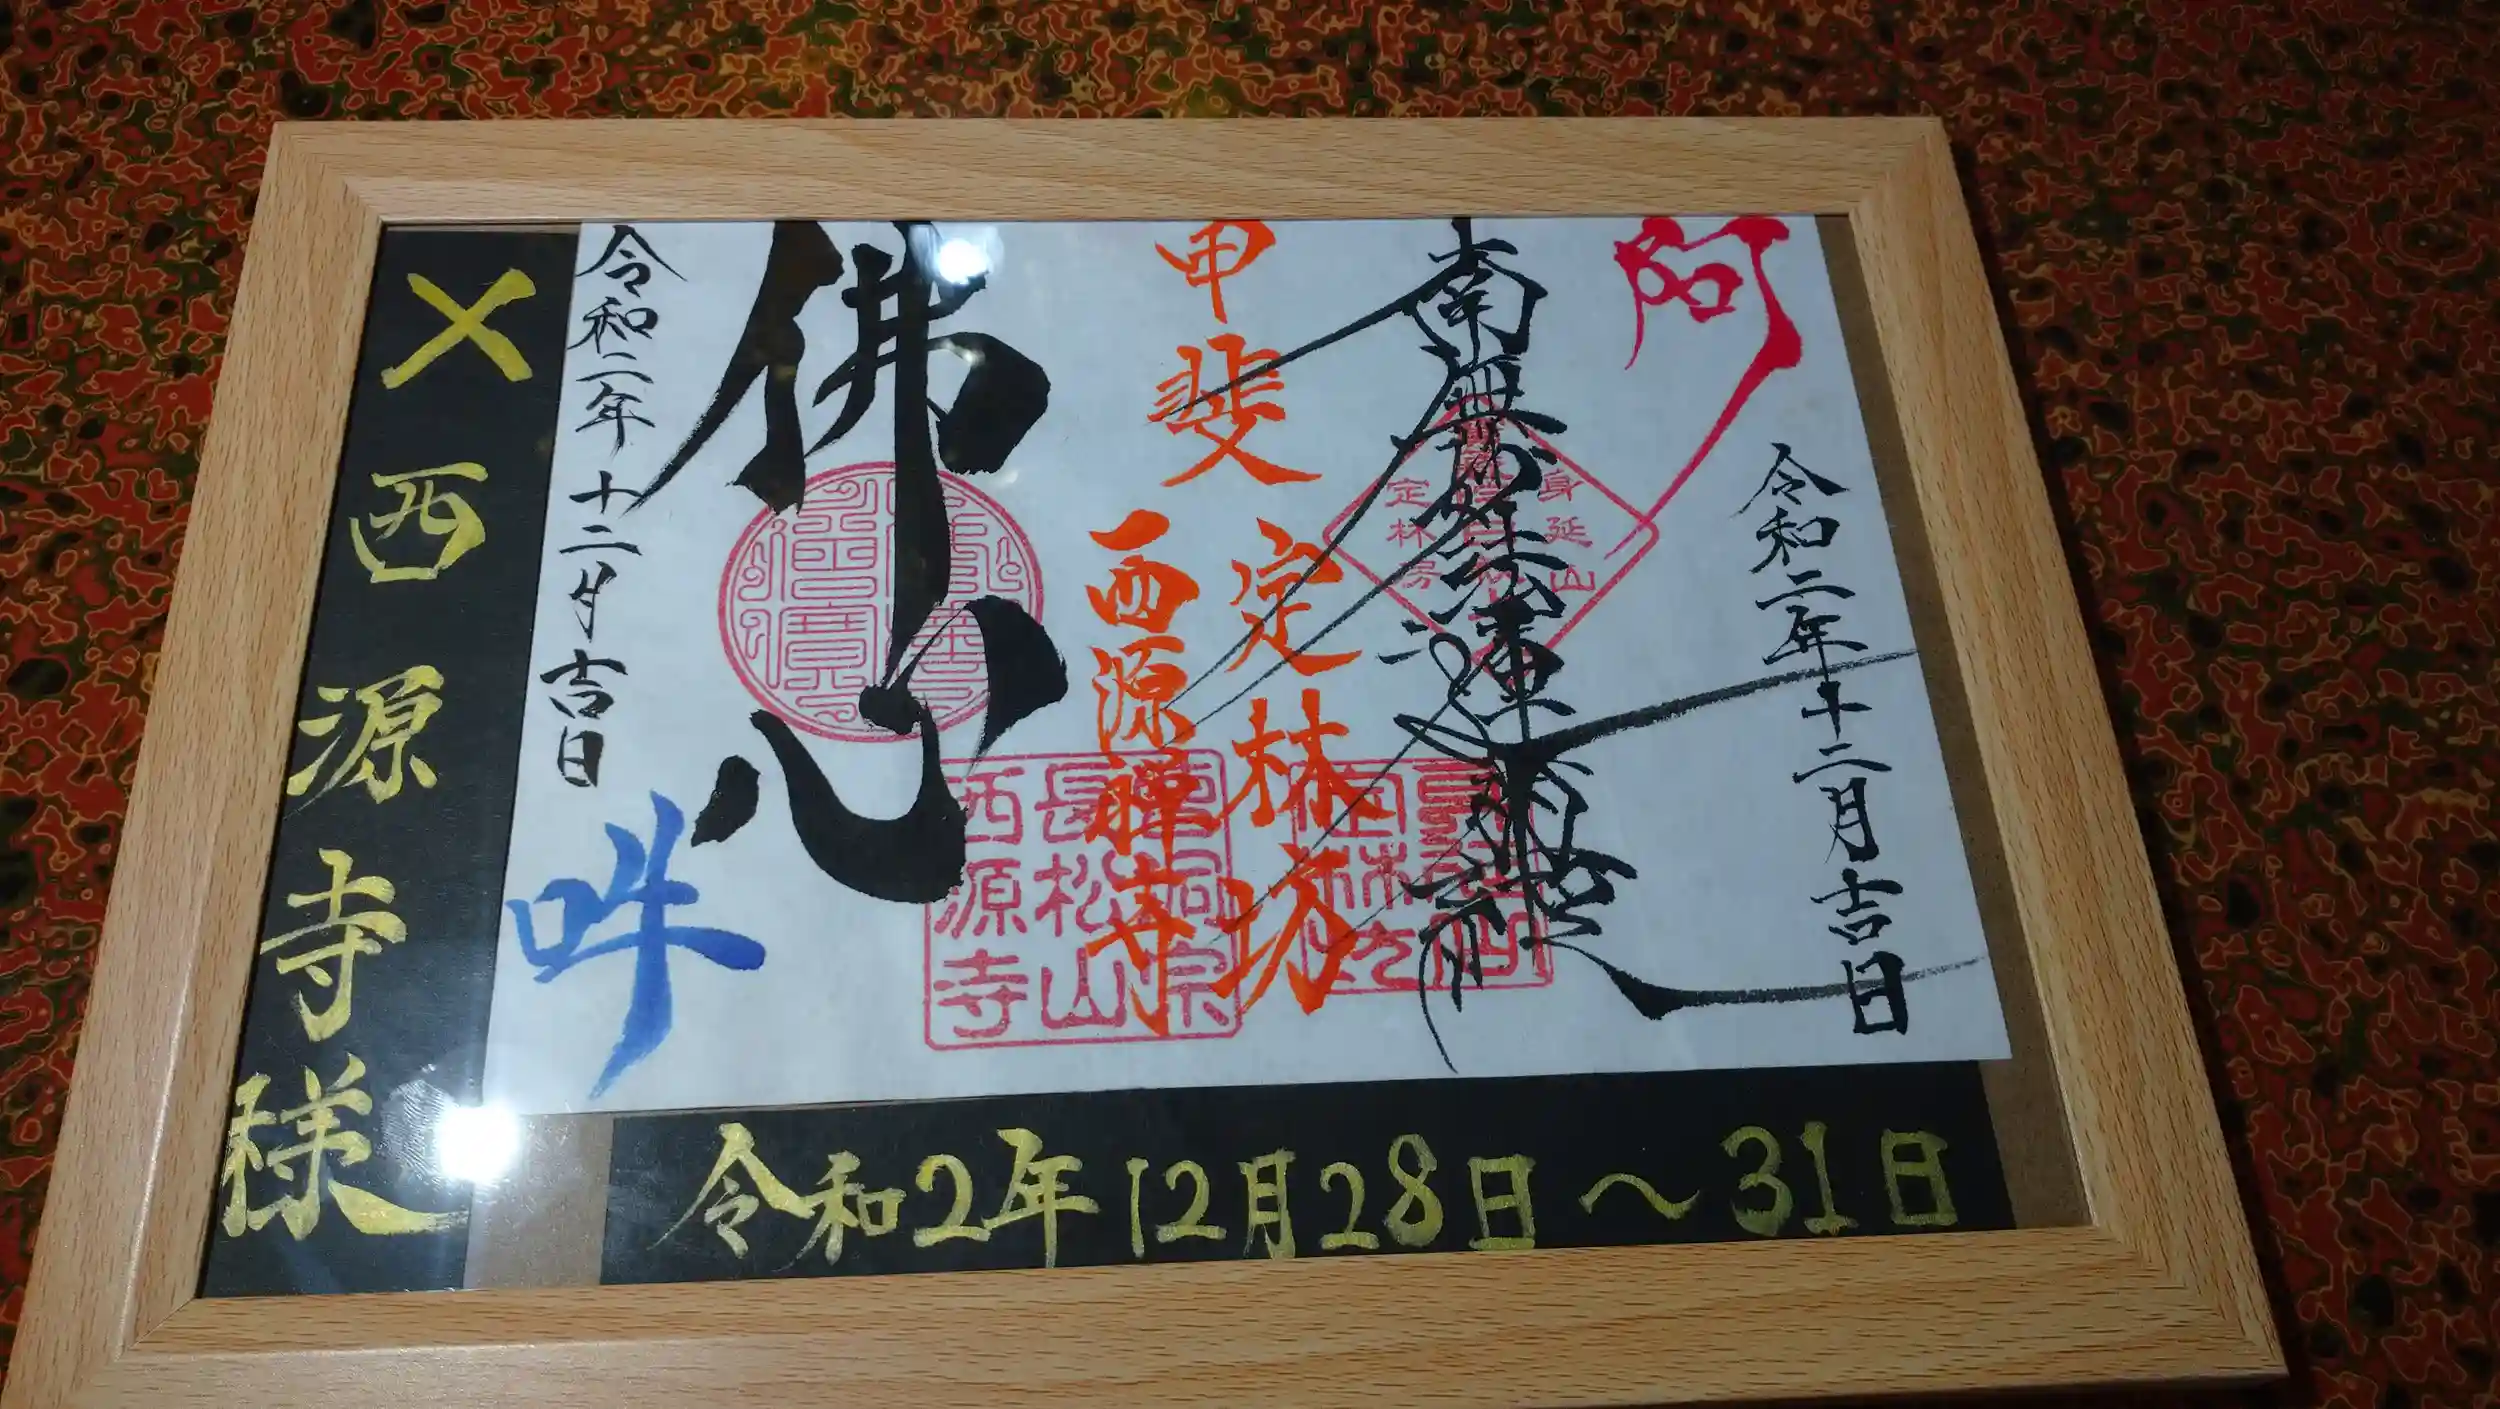 阿
令和二年十二月吉日
南無妙法蓮華経
身延山
定林房
甲斐
定林坊
西源禅寺
曹洞宗
長松山
西源寺
佛心
令和二年十二月吉日
吽
×西源寺様
令和2年12月28日～31日